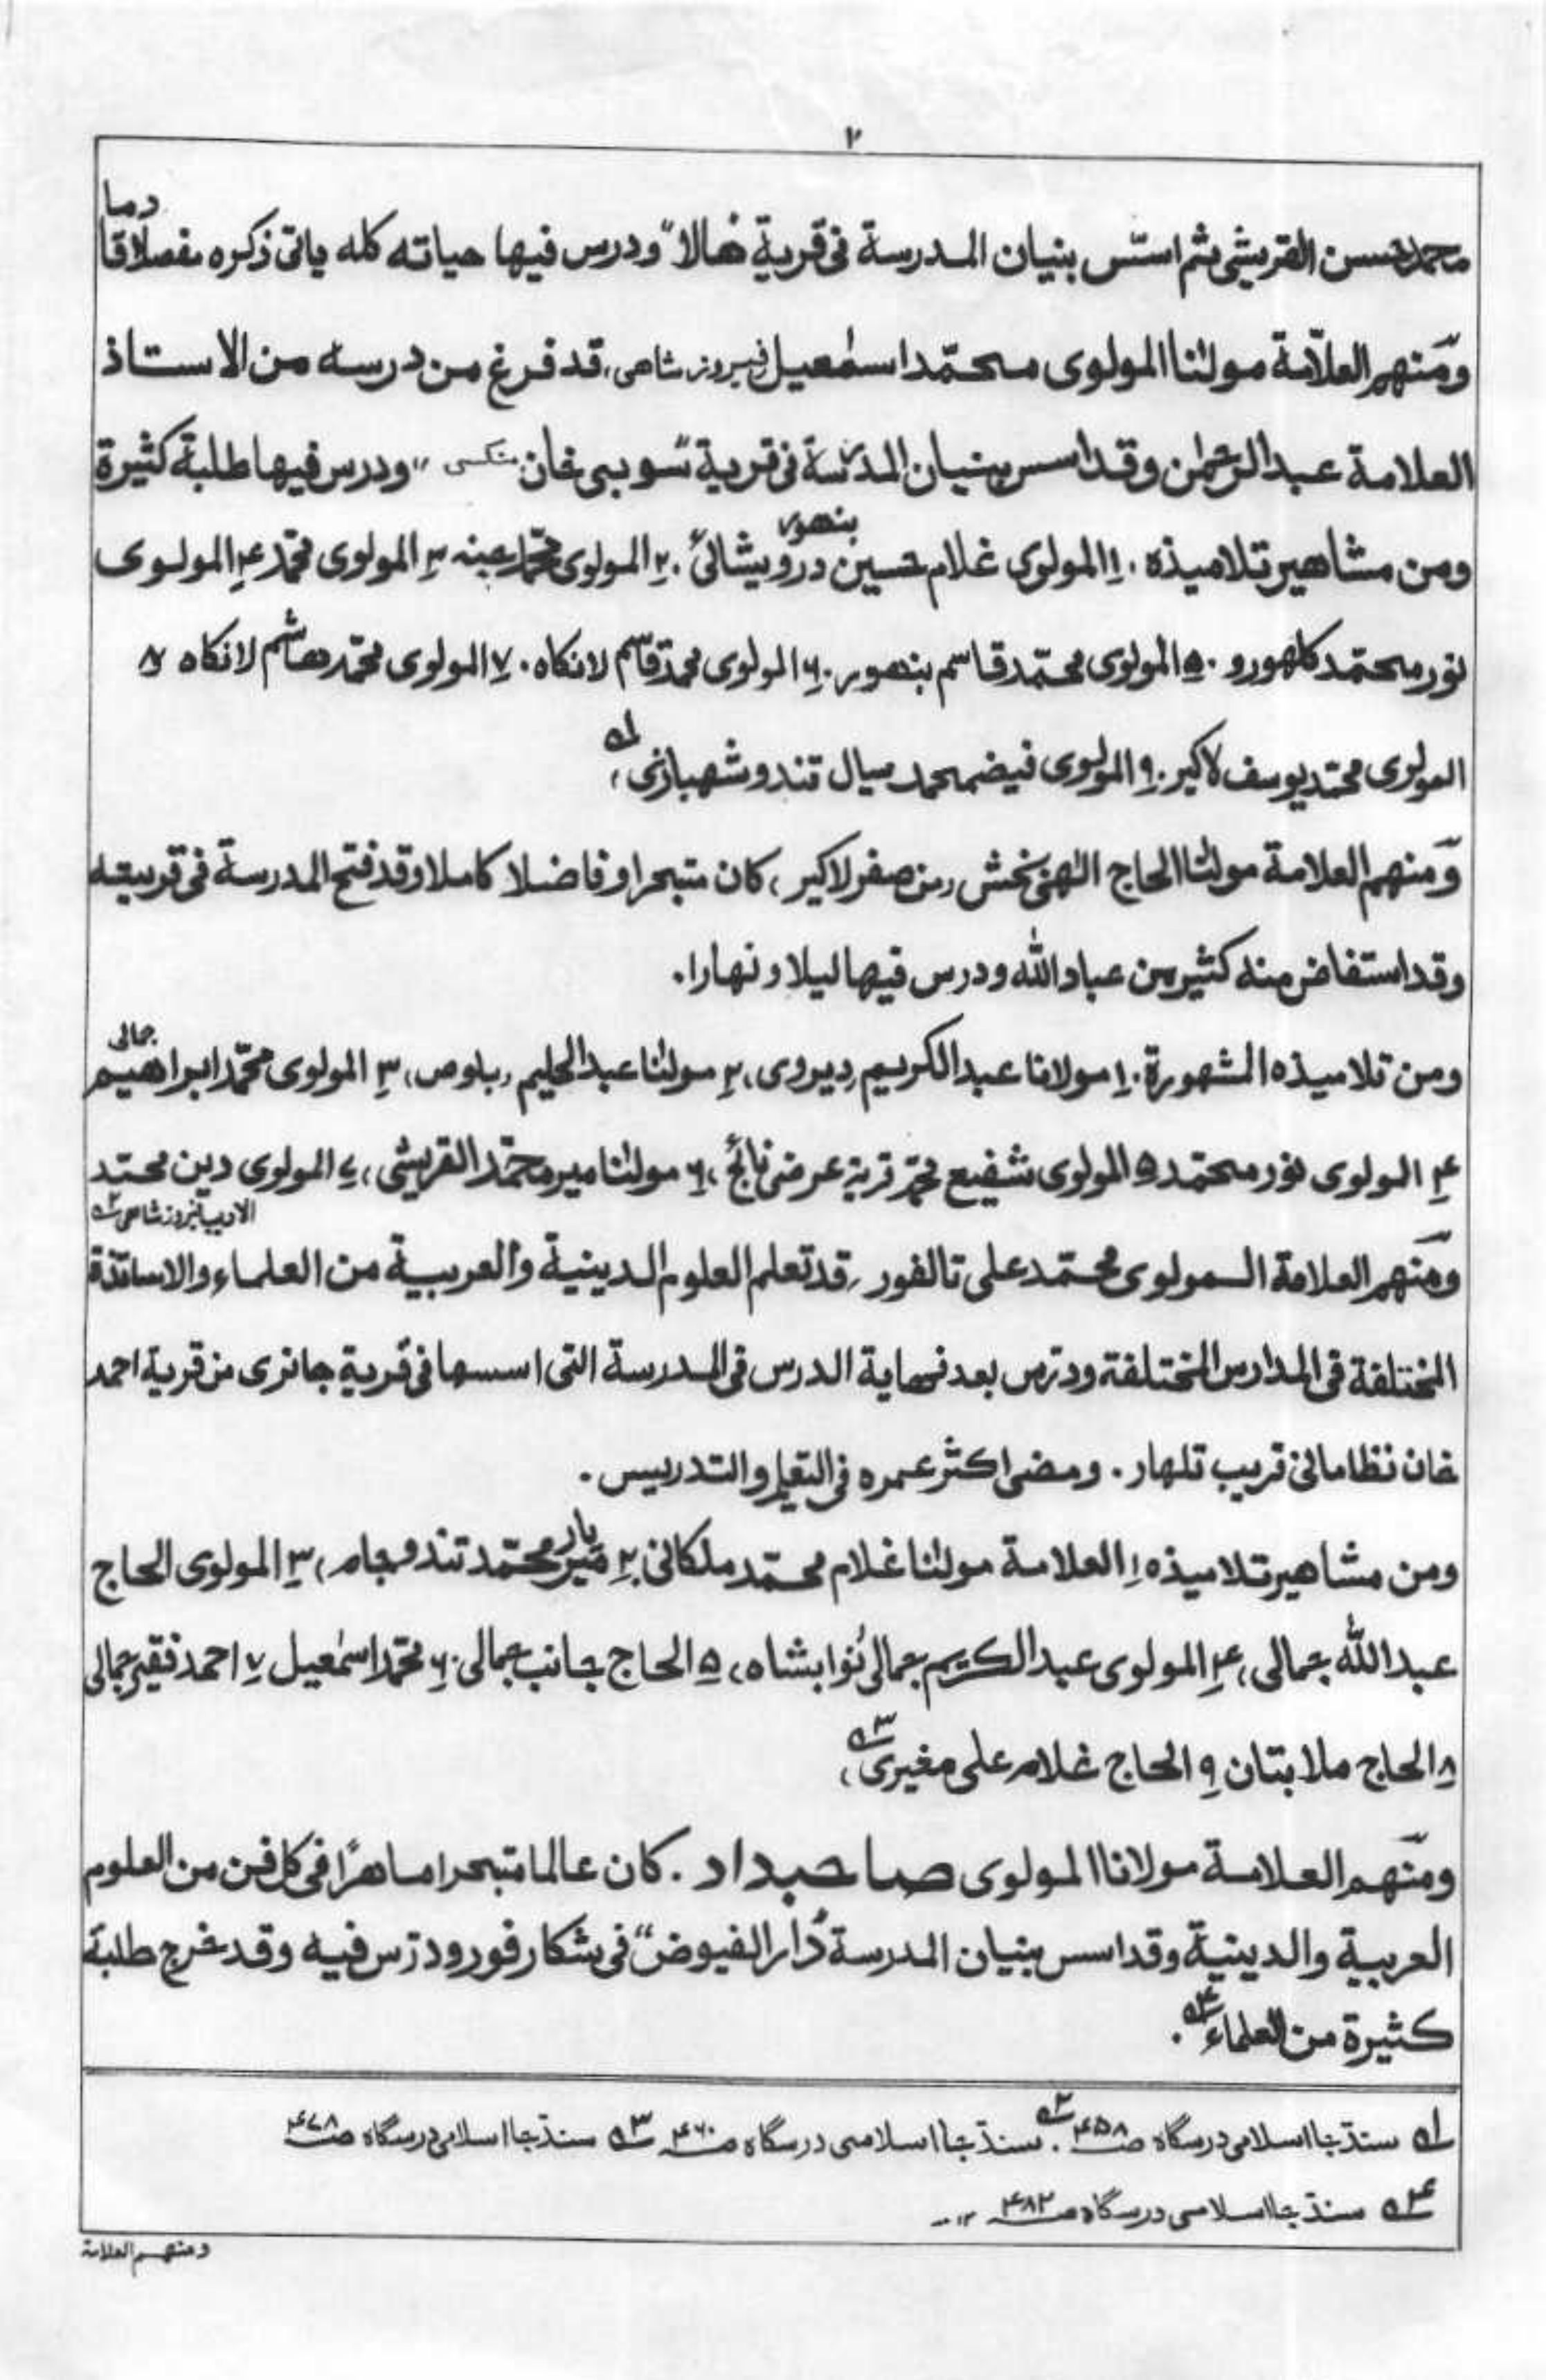 ٢
محمد حسن القريشى ثم اسّس بنيان المدرسة فى قرية "هالا" ودرس فيها حياته كله ياتى ذكره مفصلا قادما
ومنهم العلاّمة مولٰنا المولوى محمّد اسمٰعيل فيروز شاهى، قد فرغ من درسه من الاستاذ
العلامة عبد الرحمٰن وقد اسس بنيان المدرسة فى قرية "سوبى خان" ودرس فيها طلبة كثيرة
ومن مشاهير تلاميذه ۔ ١ المولوى غلام حسين بنهور درويشانى ۔ ٢ المولوى محمّد ٣ المولوى محمّد ٤ المولوى
نور محمّد كلهورو ۔ ٥ المولوى محمّد قاسم بنهور ۔ ٦ المولوى محمّد قاسم لانكاه ۔ ٧ المولوى محمّد هاشم لانكاه ٨
المولوى محمّد يوسف لاكير ۔ ٩ المولوى فيض محمد سيال تندو شهبازى ١ه
ومنهم العلامة مولٰنا الحاج الٰهى بخش من صفر لاكير، كان متبحرا وفاضلا كاملا وقد فتح المدرسة فى قريته
وقد استفاض منه كثير من عباد الله ودرس فيها ليلا ونهارا.
ومن تلاميذه المشهورة ۔ ١ مولانا عبد الكريم ديروى، ٢ مولٰنا عبد الحليم، ٣ المولوى محمّد ابراهيم جمالى
٤ المولوى نور محمّد ٥ المولوى شفيع محمّد قرية عرضى، ٦ مولٰنا مير محمّد القريشى، ٧ المولوى دين محمّد
الاديب فيروز شاهى ٢ه
ومنهم العلامة المولوى محمّد على تالفور، قد تعلم العلوم الدينية والعربية من العلماء والاساتذة
المختلفة فى المدارس المختلفة ودرّس بعد نهاية الدرس فى المدرسة التى اسسها فى قرية جانرى من قرية احمد
خان نظامانى قريب تلهار. ومضى اكثر عمره فى التعليم والتدريس.
ومن مشاهير تلاميذه ١ العلامة مولٰنا غلام محمّد ملكانى ٢ مير يار محمّد تندو جام، ٣ المولوى الحاج
عبد الله جمالى، ٤ المولوى عبد الكريم جمالى نوابشاه، ٥ الحاج جانب جمالى ۔ ٦ محمّد اسمٰعيل ٧ احمد فقير جمالى
٨ الحاج ملا بتان ٩ الحاج غلام على مغيرى ٣ه
ومنهم العلامة مولانا المولوى صاحبداد. كان عالما متبحرا ماهرًا فى كل فن من العلوم
العربية والدينية وقد اسس بنيان المدرسة "دار الفيوض" فى شكارفور ودرّس فيه وقد خرج طلبة
كثيرة من العلماء ٤ه.
١ه سنڌ جا اسلامى درسگاه صـ ٤٥٨ ۔ ٢ه سنڌ جا اسلامى درسگاه صـ ٤٦٠ ٣ه سنڌ جا اسلامى درسگاه صـ ٤٧٨
٤ه سنڌ جا اسلامى درسگاه صـ ٤٨٢ ١٢
ومنهم العلامة